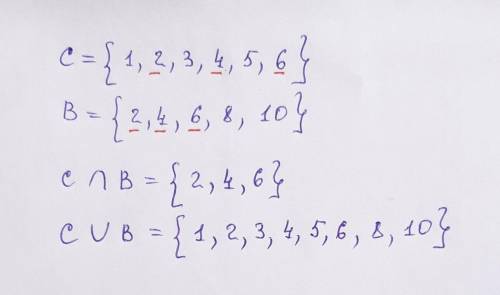 C = { 1, 2, 3, 4, 5, 6 }
B = { 2, 4, 6, 8, 10 }
C ∩ B = { 2, 4, 6 }
C ∪ B = { 1, 2, 3, 4, 5, 6, 8, 10 }